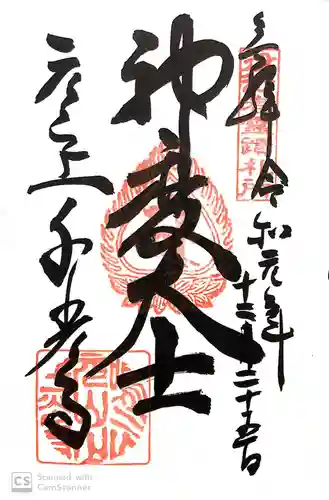 奉拝 令和元年
十二月二十五日
神変大士
元山上千光寺
CS
Scanned with
CamScanner